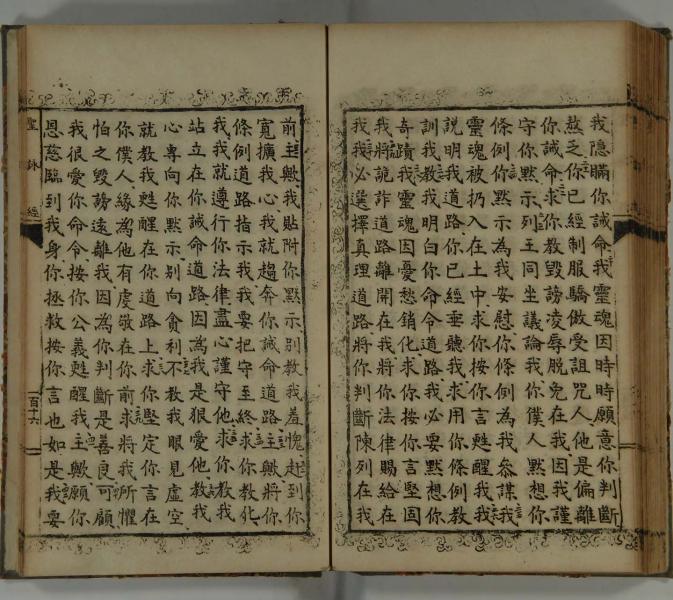 我隱瞞你誡命我靈魂因時時願意你判斷
熬乏你已經制服驕傲受詛咒人他是偏離
你誡命求你教毀謗凌辱脫免在我因我謹
守你默示列王同坐議論我你僕人默想你
條例你默示為我安慰你條例為我參謀我
靈魂被扔入在土中求你按你言甦醒我我
說明我道路你已經垂聽我求用你條例教
訓我教我明白你命令道路我必要默想你
奇蹟我靈魂因憂愁銷化求你按你言堅固
我將詭詐道路離開在我將你法律賜給在
我我必選擇真理道路將你判斷陳列在我
前主歟我貼附你默示別教我羞愧起到你
寬擴我心我就趨奔你誡命道路主歟將你
條例道路指示我我要把守至終求你教化
我我就遵行你法律盡心謹守他求你教我
站立在你誡命道路因為我是狠愛他教我
心專向你默示別向貪利不教我眼見虛空
就教我甦醒在你道路上求你堅定你言在
你僕人緣為他有虔敬在你前求將我所懼
怕之毀謗遠離我因為你判斷是善良可顧
我很愛你命令按你公義甦醒我主歟願你
恩慈臨到我身你拯救按你言也如是我要
聖詠經
百十六